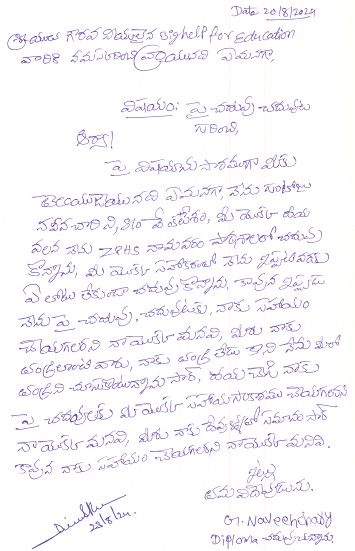 Date 20/8/2024
శ్రీయుత గౌరవ నీయులైన Bighelp for Education
వారికి నమస్కరించి వ్రాయునది ఏమనగా,
విషయం: పై చదువు చదువుట
గురించి,
ఆర్యా!
పై విషయము సారముగా మీకు
తెలియజేయునది ఏమనగా, నేను
నవీన చారి ని, S/o వెంకటేశం, మీ యొక్క దయ
వలన నేను ZPHS నామవరం పాఠశాలలో చదువు
కొన్నాను, మీ యొక్క సహకారంతో నేను ఇప్పటివరకు
ఏ లోటు లేకుండా చదువుకొన్నాను, కావున ఇప్పుడు
నేను పై చదువు చదువుటకు, నాకు సహాయం
చేయగలరని నా యొక్క మనవి, మీరు నాకు
తండ్రిలాంటి వారు, నాకు తండ్రి లేడు కాని నేను మీలో
తండ్రిని చూసుకొంటున్నాను సార్, దయ చేసి నాకు
పై చదువులకు మీ యొక్క సహాయసహకారము చేయగలరని
నా యొక్క మనవి, మీరు నాకు దేవుళ్ళతో సమానం సార్
కావున నాకు సహాయం చేయగలరని నా యొక్క మనవి.
ఇట్లు
తమ విధేయుడును.
G. Naveenchary
Diploma చదువుచున్నాను.
23/8/24.